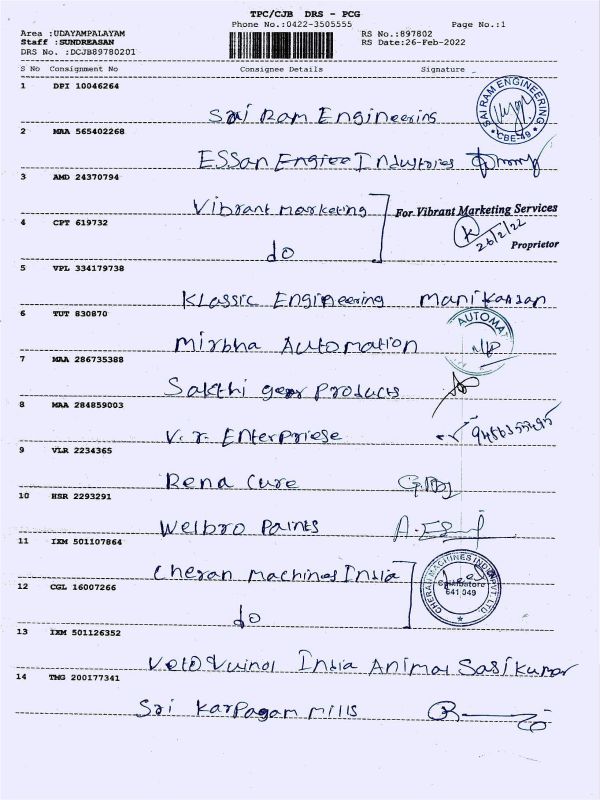 TPC/CJB DRS - PCG
Phone No.:0422-3505555 Page No.:1
Area :UDAYAMPALAYAM RS No.:897802
Staff :SUNDREASAN RS Date:26-Feb-2022
DRS No. :DCJB89780201
S No Consignment No Consignee Details Signature
1 DPI 10046264
Sai Ram Engineering
SAI RAM ENGINEERING
* CBE-49 *
2 MAA 565402268
ESSan Engiee Industries
3 AMD 24370794
Vibrant marketing For Vibrant Marketing Services
4 CPT 619732
do 26/2/22 Proprietor
5 VPL 334179738
Klassic Engineering Manikandan
6 TUT 830870
Mirbha Automation AUTOMAT
7 MAA 286735388
Sakthi gear Products
8 MAA 284859003
V. r. Enterpriese
9 VLR 2234365
Rena Cure
10 HSR 2293291
Welbro Paints
11 IXM 501107864
Cheran Machines India
12 CGL 16007266
do
CHERAN MACHINES INDIA PVT. LTD
Coimbatore
641 049
13 IXM 501126352
India Animal Sasikumar
14 TMG 200177341
Sri Karpagam Mills